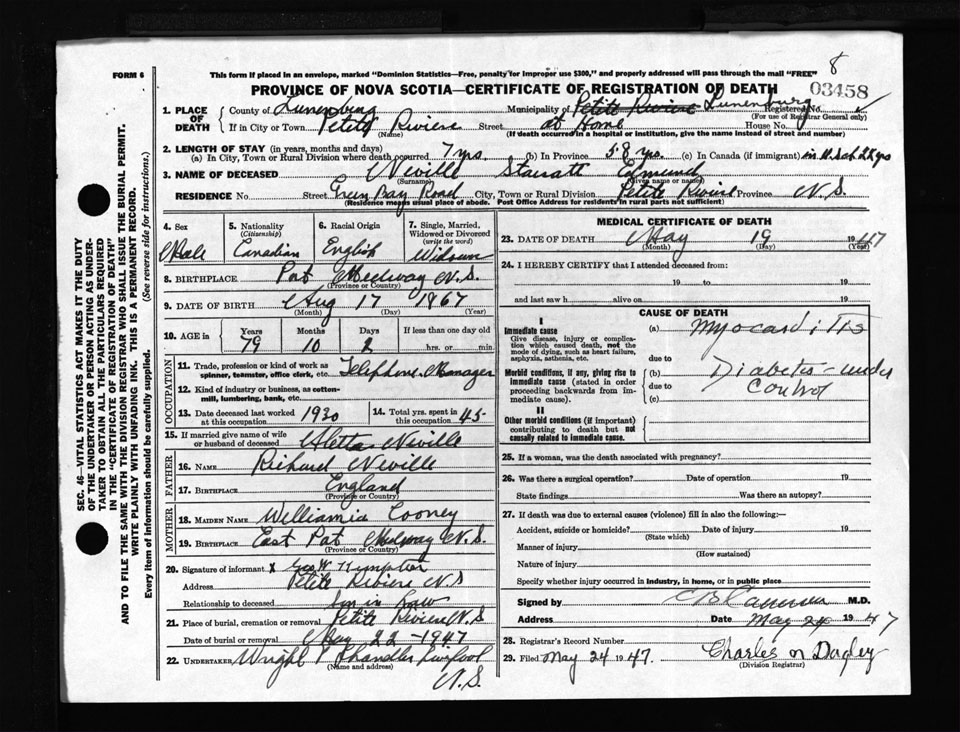 8
FORM 6
This form if placed in an envelope, marked "Dominion Statistics—Free, penalty for improper use $300," and properly addressed will pass through the mail "FREE"
PROVINCE OF NOVA SCOTIA—CERTIFICATE OF REGISTRATION OF DEATH
03458
1. PLACE OF DEATH
County of Lunenburg Municipality of Petite Riviere Lunenburg Registered No.
(For use of Registrar General only)
If in City or Town Petite Riviere Street at Home House No.
(Name) (If death occurred in a hospital or institution, give the name instead of street and number)
2. LENGTH OF STAY (in years, months and days)
(a) In City, Town or Rural Division where death occurred 7 yrs. (b) In Province 58 yrs. (c) In Canada (if immigrant)
3. NAME OF DECEASED Neville Edmund
(Surname) (Given name or names)
RESIDENCE No. Street Green Bay Road City, Town or Rural Division Petite Riviere Province N.S.
(Residence means usual place of abode. Post Office Address for residents in rural parts not sufficient)
4. Sex
Male
5. Nationality
(Citizenship)
Canadian
6. Racial Origin
English
7. Single, Married,
Widowed or Divorced
(write the word)
8. BIRTHPLACE Port Medway N.S.
(Province or Country)
9. DATE OF BIRTH Aug 17 1867
(Month) (Day) (Year)
10. AGE in
Years Months Days If less than one day old
79 10 2 hrs. or min.
OCCUPATION
11. Trade, profession or kind of work as
spinner, teamster, office clerk, etc. Telephone Manager
12. Kind of industry or business, as cotton-
mill, lumbering, bank, etc.
13. Date deceased last worked
at this occupation 1930
14. Total yrs. spent in
this occupation 45
15. If married give name of wife
or husband of deceased Aletta Neville
FATHER
16. NAME Richard Neville
17. BIRTHPLACE England
(Province or Country)
MOTHER
18. MAIDEN NAME Williamia Cooney
19. BIRTHPLACE East Port Medway N.S.
(Province or Country)
20. Signature of informant x Geo W Kempton
Address Petite Riviere N.S
Relationship to deceased Son in Law
21. Place of burial, cremation or removal Petite Riviere N.S
Date of burial or removal May 22 - 1947
22. UNDERTAKER Wright Chandler Liverpool
(Name and address)
N.S.
MEDICAL CERTIFICATE OF DEATH
23. DATE OF DEATH May 19 1947
(Month) (Day) (Year)
24. I HEREBY CERTIFY that I attended deceased from:
19 to 19
and last saw h alive on 19
CAUSE OF DEATH
I
Immediate cause
Give disease, injury or complica-
tion which caused death, not the
mode of dying, such as heart failure,
asphyxia, asthenia, etc.
(a) Myocarditis
due to
Morbid conditions, if any, giving rise to
immediate cause (stated in order
proceeding backwards from im-
mediate cause).
(b) Diabetes - under
due to control
(c)
II
Other morbid conditions (if important)
contributing to death but not
causally related to immediate cause.
25. If a woman, was the death associated with pregnancy?
26. Was there a surgical operation? Date of operation 19
State findings Was there an autopsy?
27. If death was due to external causes (violence) fill in also the following:—
Accident, suicide or homicide? Date of injury 19
(State which)
Manner of injury
(How sustained)
Nature of injury
Specify whether injury occurred in industry, in home, or in public place
Signed by M.D.
Address Date May 24 1947
28. Registrar's Record Number
29. Filed May 24 1947. Charles
(Division Registrar)
SEC. 46—VITAL STATISTICS ACT MAKES IT THE DUTY
OF THE UNDERTAKER OR PERSON ACTING AS UNDER-
TAKER TO OBTAIN ALL THE PARTICULARS REQUIRED
IN THE "CERTIFICATE OF REGISTRATION OF DEATH"
AND TO FILE THE SAME WITH THE DIVISION REGISTRAR WHO SHALL ISSUE THE BURIAL PERMIT.
WRITE PLAINLY WITH UNFADING INK. THIS IS A PERMANENT RECORD.
Every item of information should be carefully supplied. (See reverse side for instructions.)